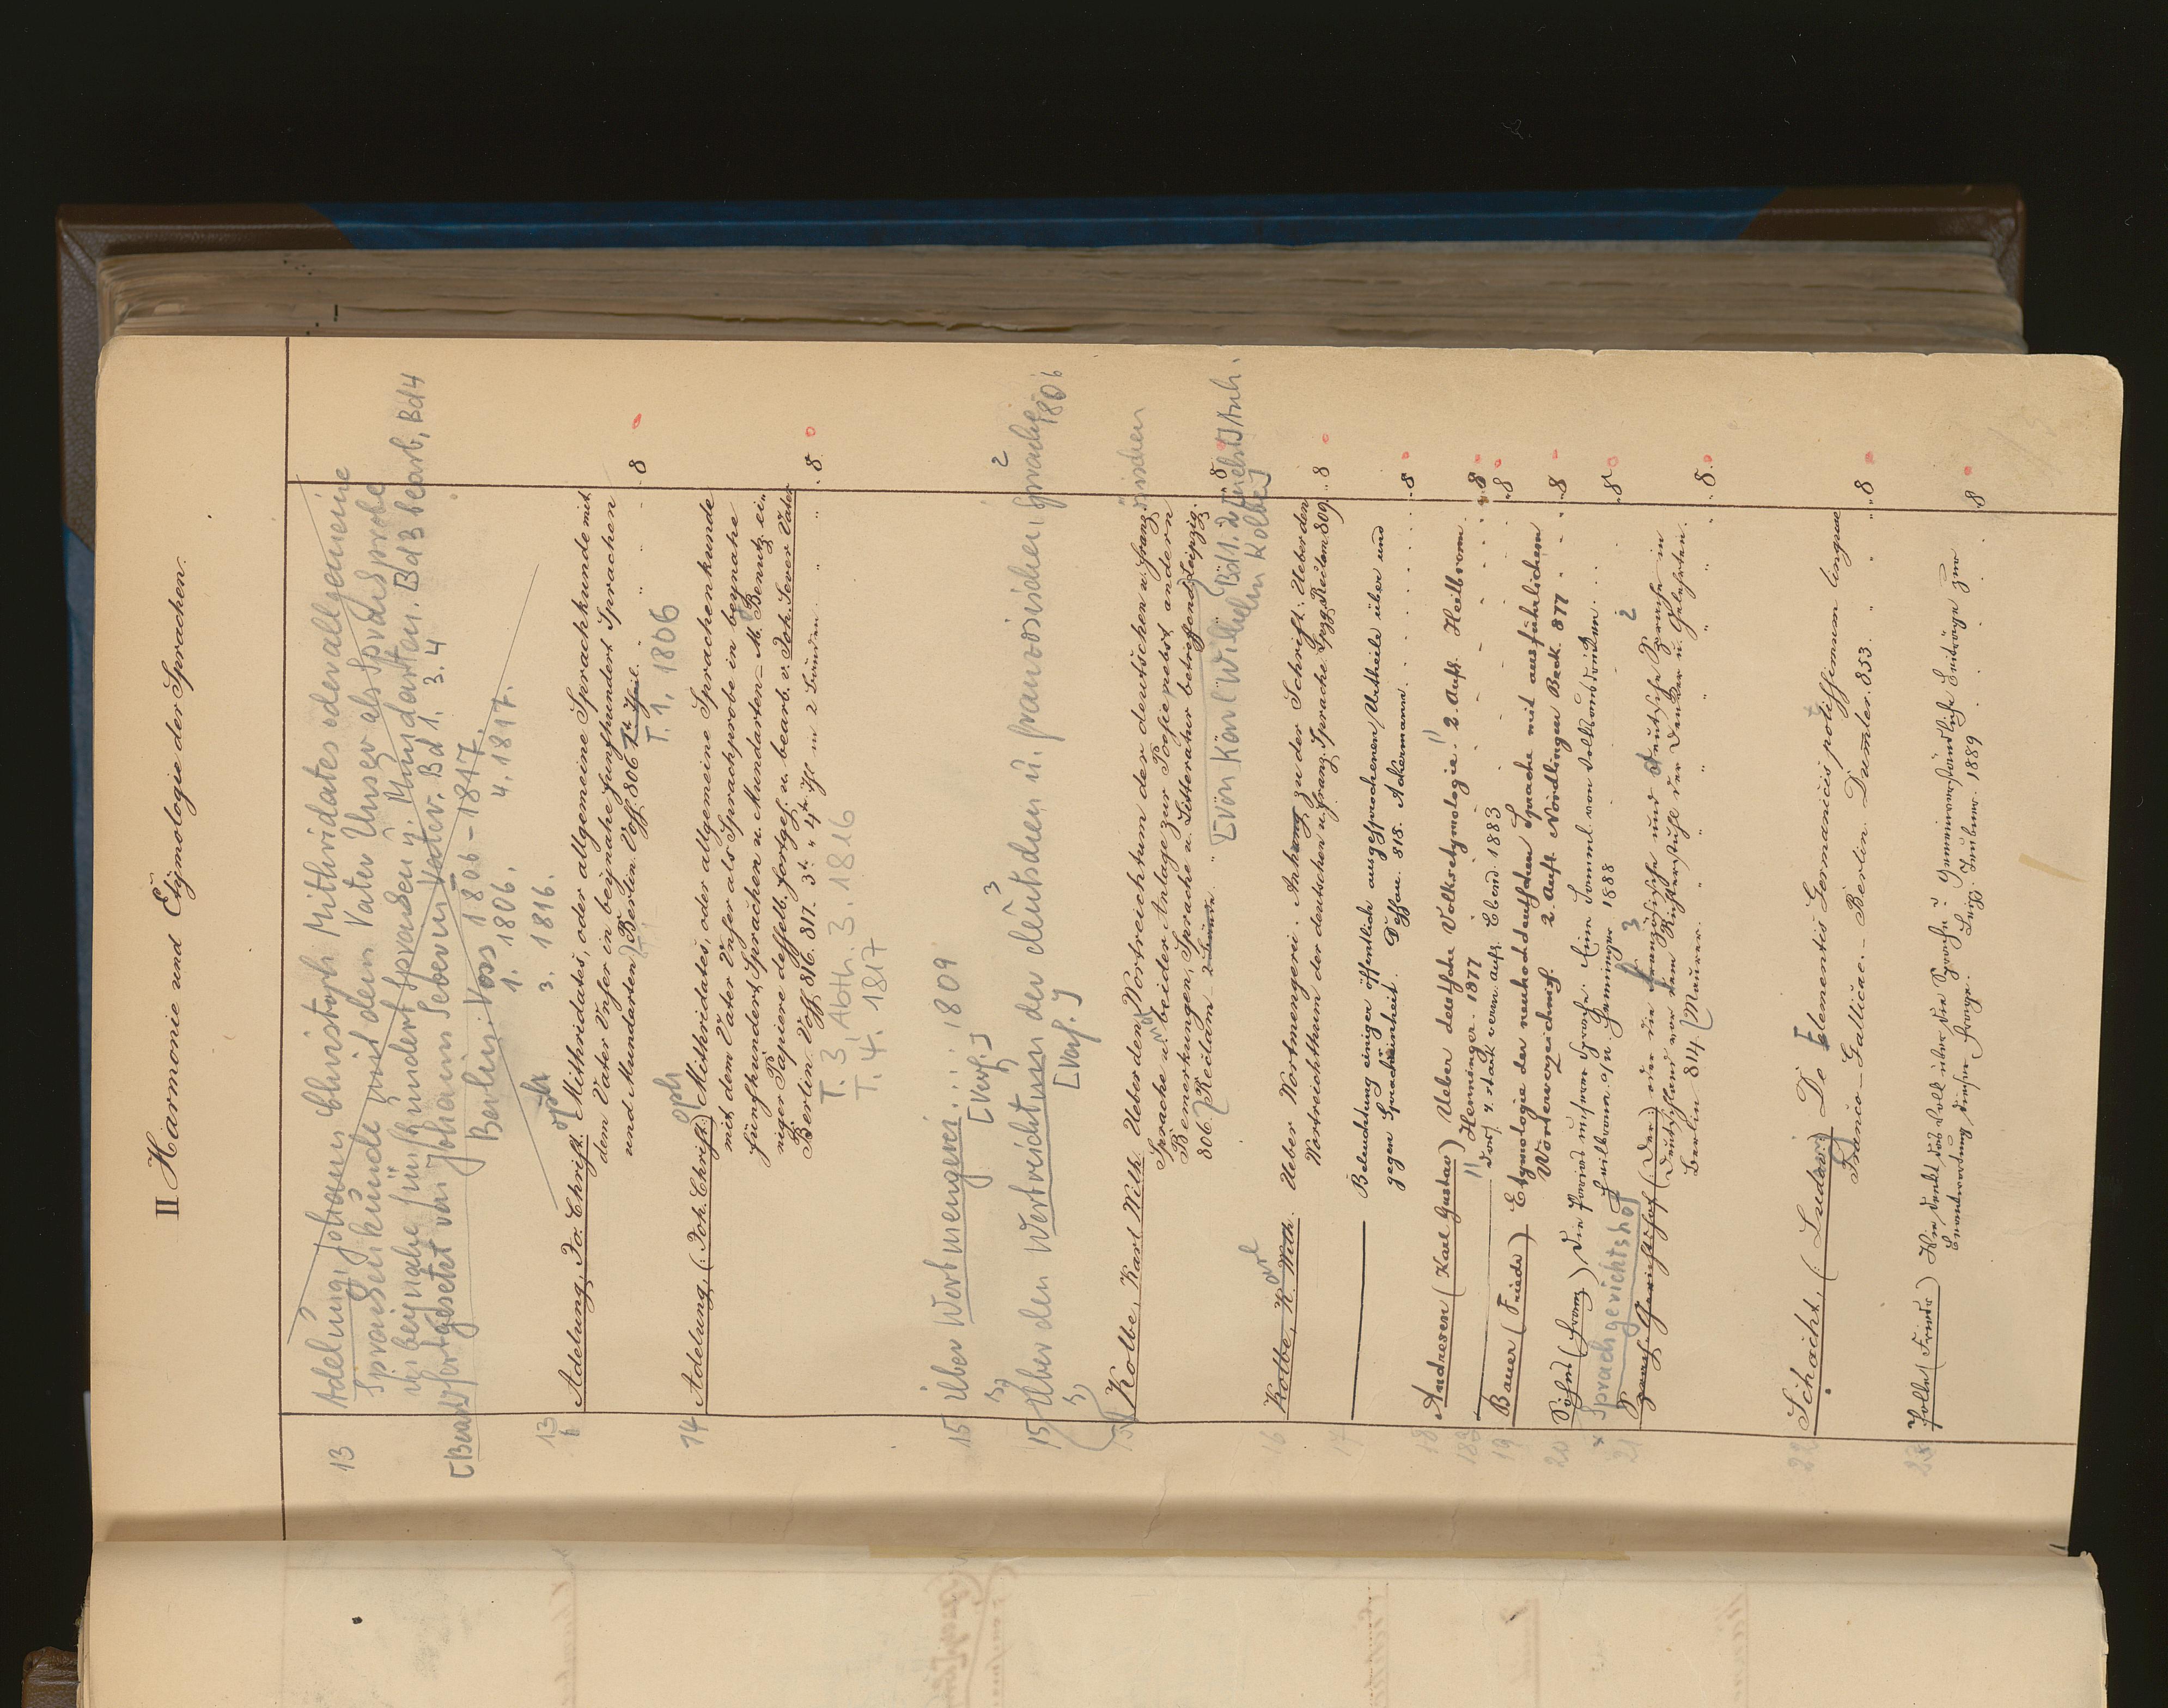 II Harmonie und Etymologie der Sprachen.
13 Adelung, Johann Christoph Mithridates oder allgemeine
Sprachenkunde mit dem Vater Unser als Sprachprobe
in beynahe fünfhundert Sprachen u. Mundarten. Bd 3 bearb, Bd 4
[Bearb.] fortgesetzt von Johann Severin Vater. Bd 1. 3. 4
Berlin: Voss 1806-1817.
1. 1806. 4. 1817.
3. 1816.
13 Adelung, Jo: Christ. oph Mithridates, oder allgemeine Sprachkunde mit
dem Vater Unser in beynahe funfhundert Sprachen
und Mundarten Berlin. Voss. 806 1r Theil. 8
T. 1. 1806
14 Adelung, (: Joh. Christ:) oph Mithridates, oder allgemeine Sprachenkunde
mit dem Vater Unser als Sprachprobe in beynahe
fünfhundert Sprachen u. Mundarten - M. Benutz. ei-
niger Papiere desselb. fortges. u. bearb. v. Joh. Sever. Vater
Berlin Voss. 816. 817. 3r u 4r Th in 2 Bänden 8
T. 3, Abth. 3. 1816
T. 4. 1817
15 Über Wortmengerei.... 1809
[Verf.]
15 Über den Wortreichtum der deutschen u. französischen Sprache 1806
[Verf.]
Kolbe, Karl Wilh. Ueber den Wortreichtum der deutschen u. franz. ösischen
Sprache u. beider Anlage zur Poesie nebst andern
Bemerkungen, Sprache u. Litteratur betreffend Leipzig.
806. Reclam 2 Bände 8
[von Karl Wilhelm Kolbe]
16 Kolbe, K. Wilh. arl Ueber Wortmengerei. Anhang zu der Schrift: Ueber den
Wortreichthum der deutschen u. franz. Sprache Lpzg Reclam 809. 8
17 Beleuchtung einiger öffentlich ausgesprochenen Urtheile über und
gegen Sprachreinheit. Dessau. 818. Ackermann. 8
18 Andresen (Karl Gustav) Ueber deutsche Volksetymologie. 2. Aufl. Heilbronn.
Henninger. 1877 8
Dass. 4. stark verm. Aufl. Ebend. 1883 8
19 Bauer (Friedr) Etymologie der neuhochdeutschen Sprache mit ausführlichem
Wörterverzeichniss. 2. Aufl. Nördlingen Beck. 877 8
20 Söhns (Franz) Die Parias unserer Sprache. Eine Samml. von Volksausdrücken
Heilbronn a/N Henninger 1888 8
Sprachgerichtshof
21 Sprach-Gerichtshof (Der) oder die französische und deutsche Sprache in
Deutschland vor dem Richterstuhl der Denker u. Gelehrten.
Berlin 814. Maurer. 8
22 Schacht, (: Ludovig) De Elementis Germanicis potissimum linguae
Franco-Gallicae. - Berlin. Dümler. 853. 8
23 Polle (Friedr) Wie denkt das Volk über die Sprache? Gemeinverständliche Beiträge zur
Beantwortung dieser Frage. Leipz. Teubner. 1889 8